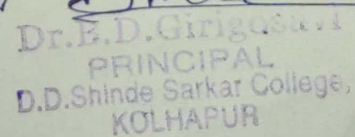 Dr.E.D.Girigosavi
PRINCIPAL
D.D.Shinde Sarkar College,
KOLHAPUR